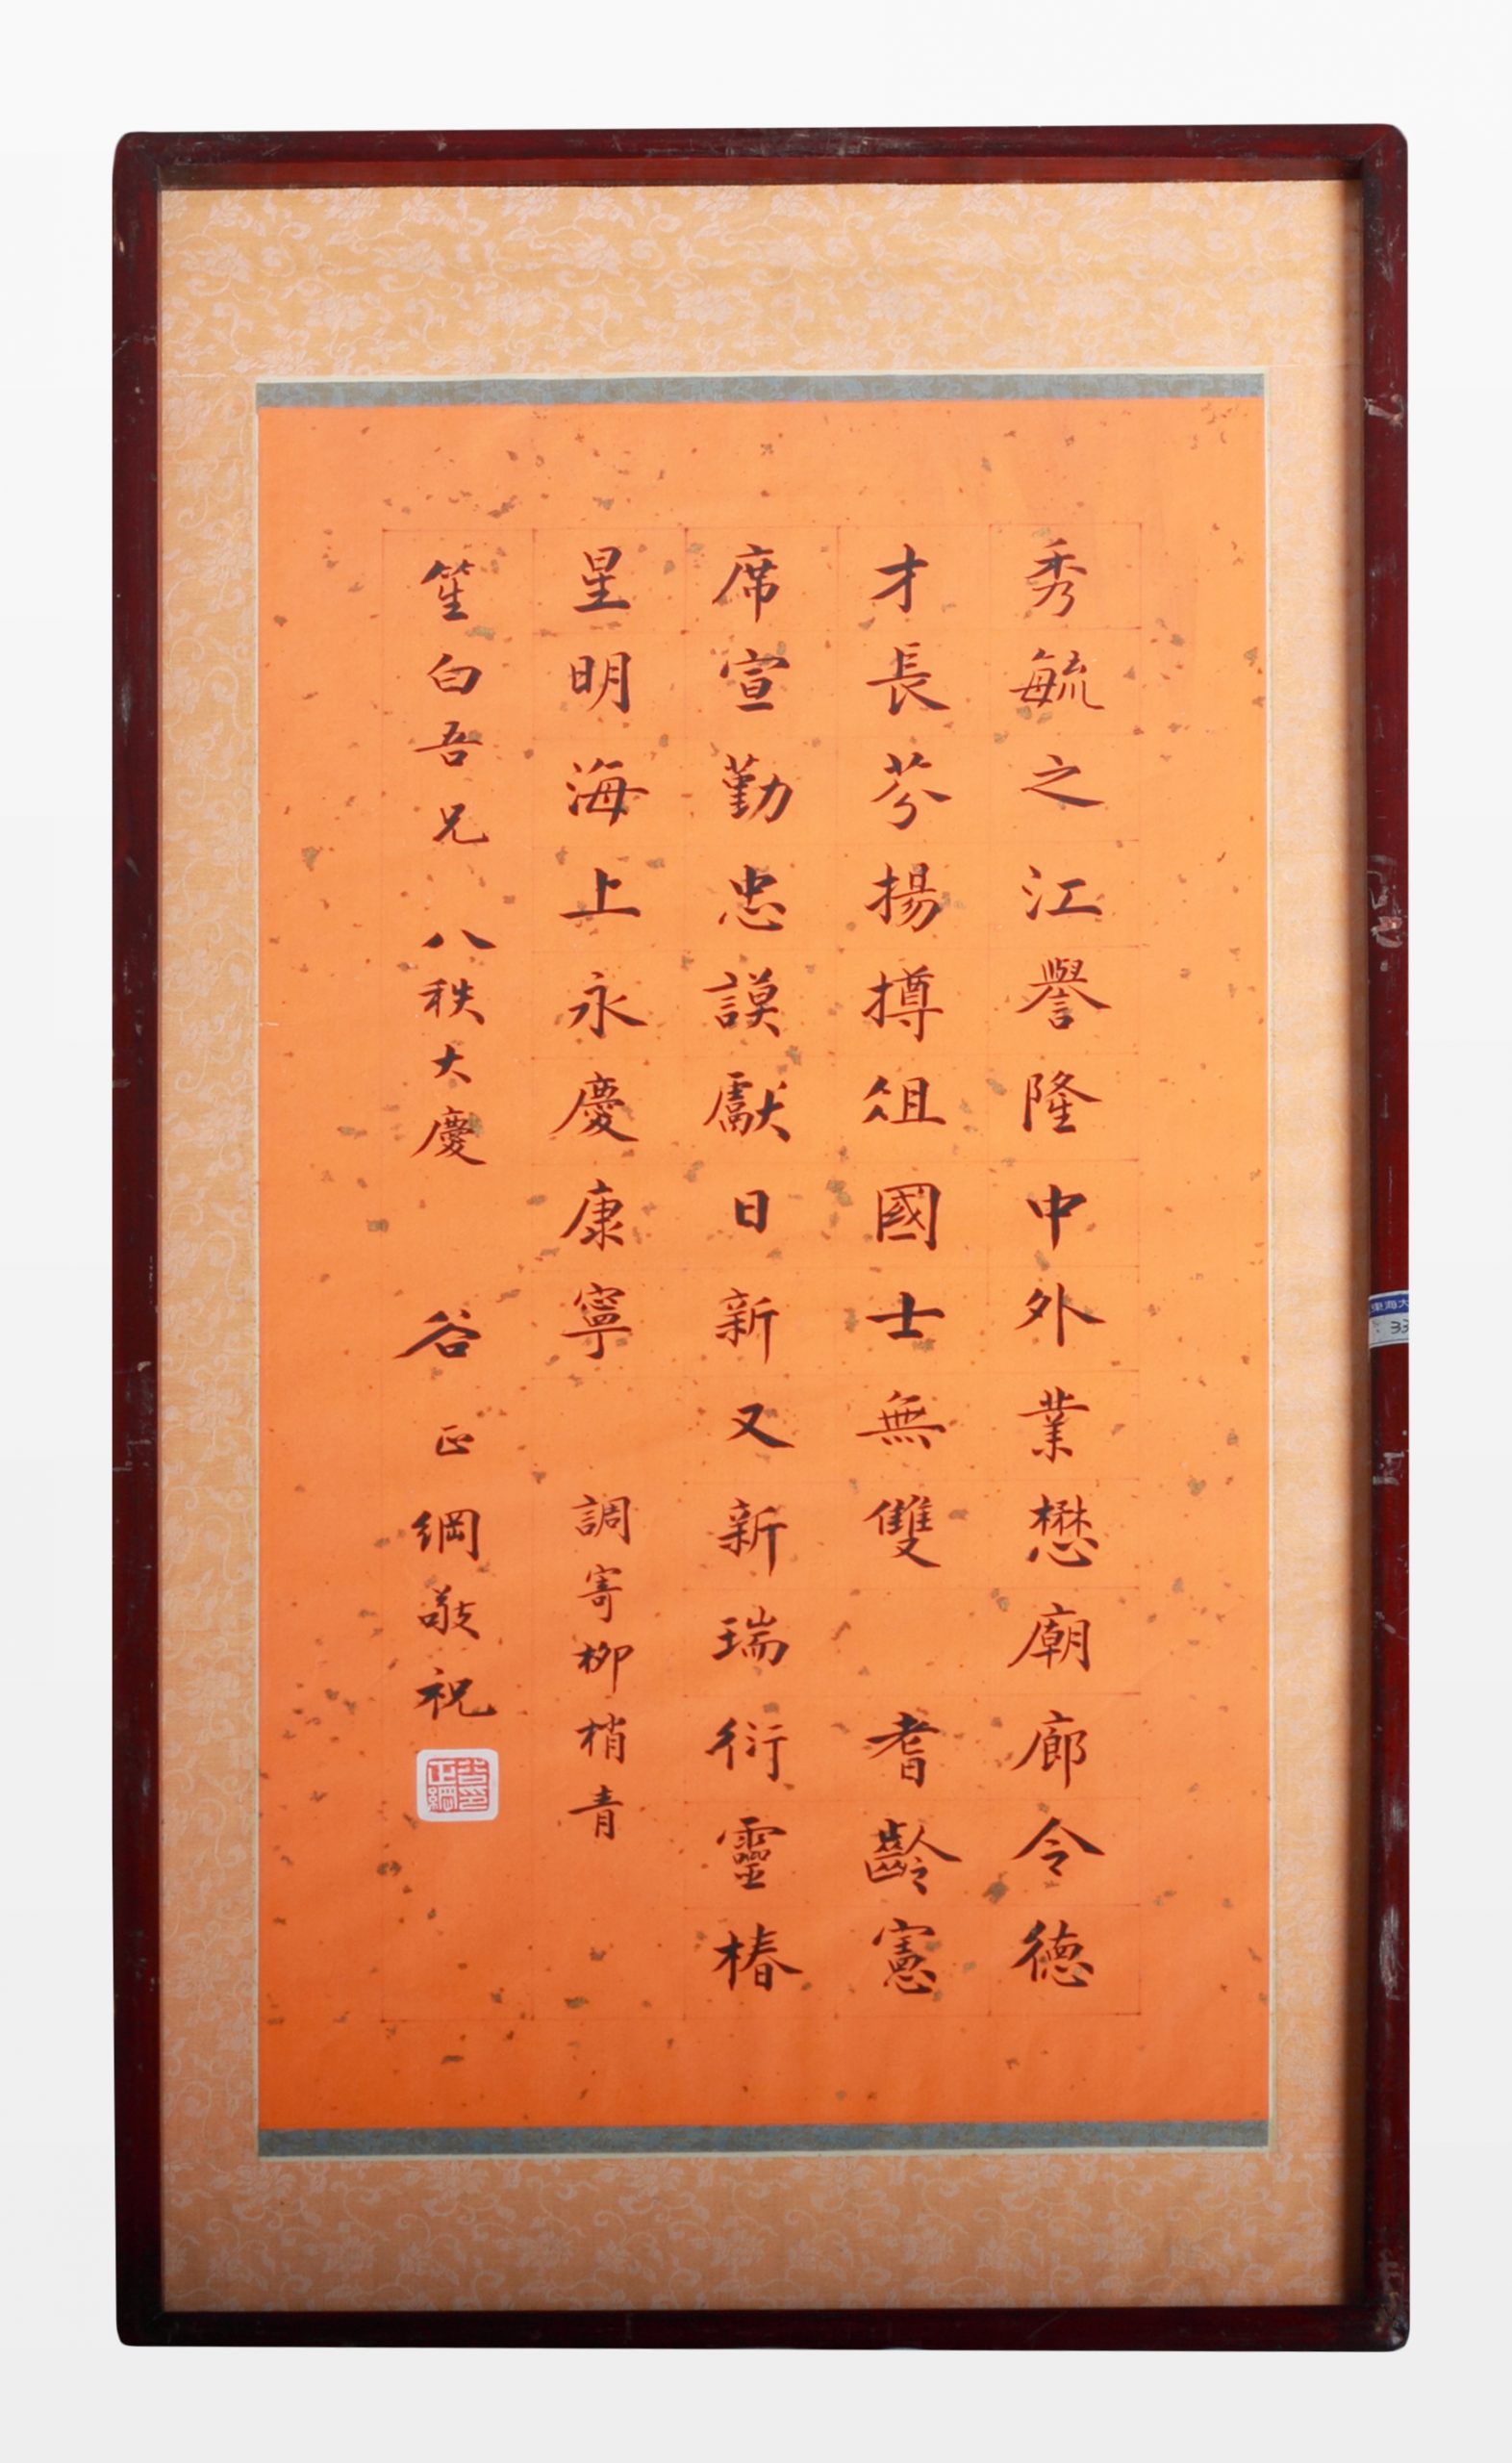 秀毓之江譽隆中外業懋廟廊令德
才長芬揚撙俎國士無雙　耆齡憲
席宣勤忠謨獻日新又新瑞衍靈椿
星明海上永慶康寧　調寄柳梢青
笙白吾兄　八秩大慶　谷正綱敬祝
谷印正綱
東海大
33